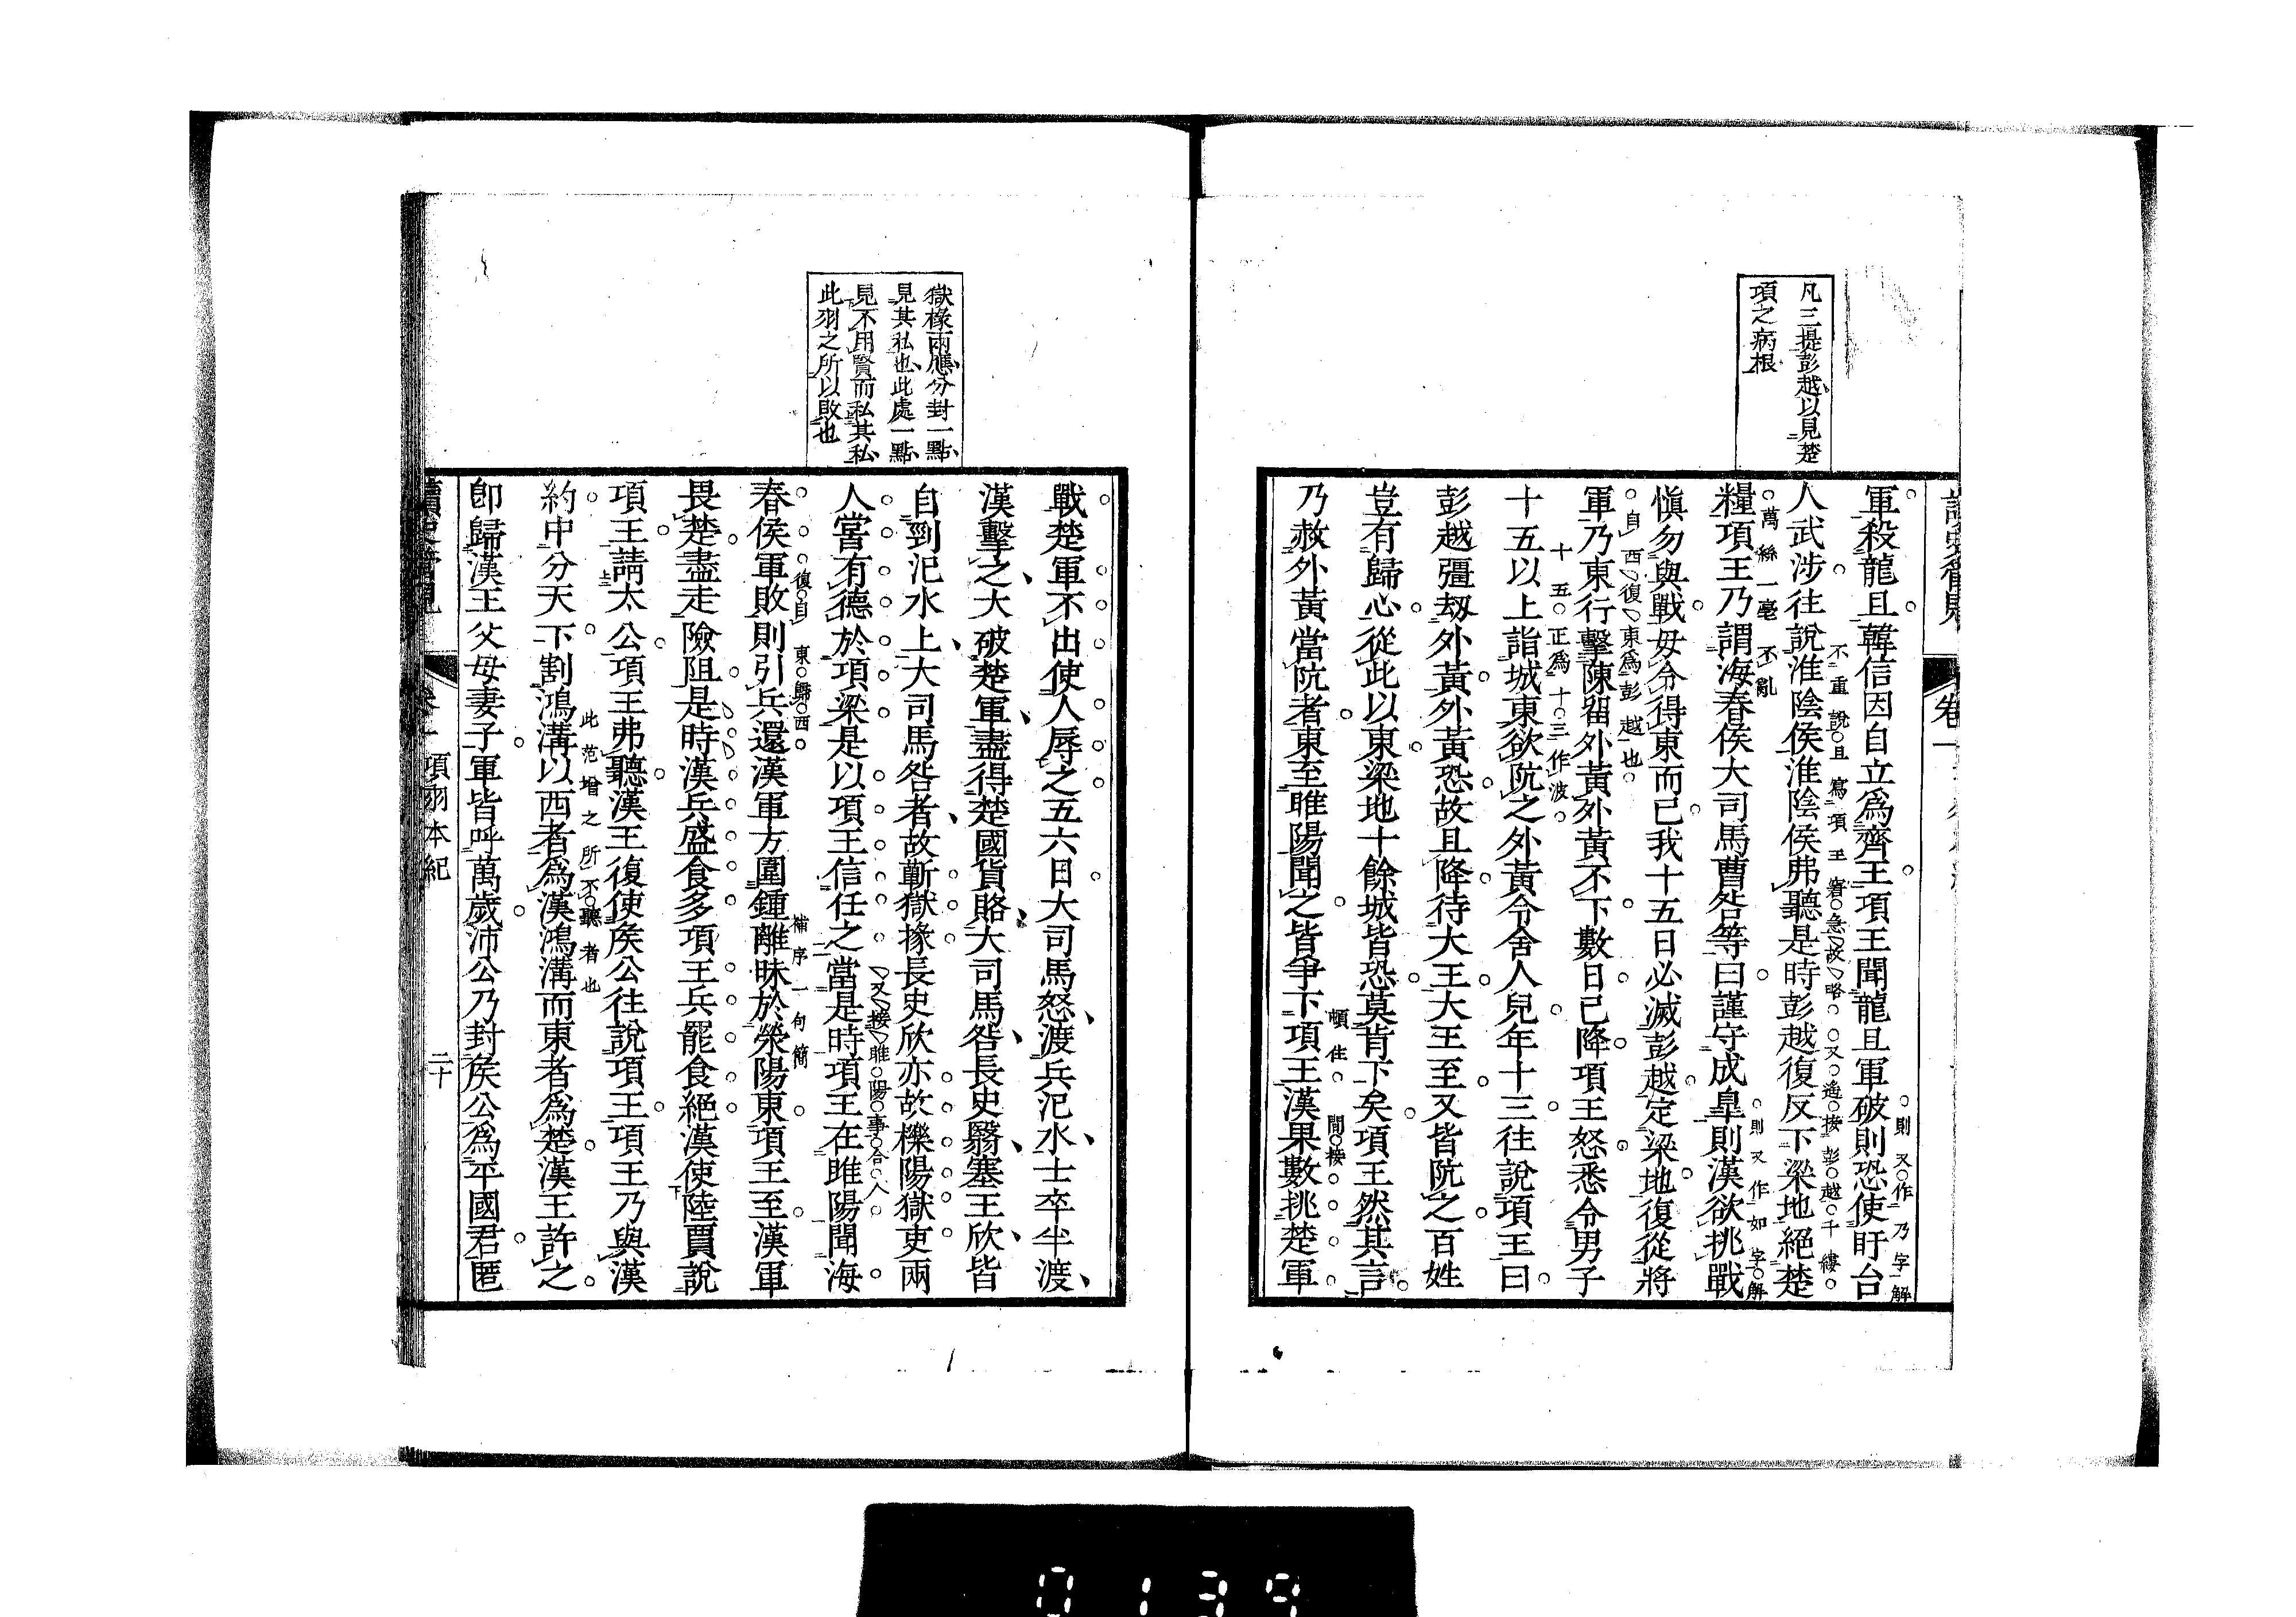 凡三提彭越以見楚
項之病根
卷一
則又作乃字解
軍殺龍且韓信因自立爲齊王項王聞龍且軍破則恐使盱台
不重說且寫項王窘急故略又遙接彭越千縷
人武涉往說淮陰侯淮陰侯弗聽是時彭越復反下梁地絕楚
萬絲一毫不亂
則又作如字解
糧項王乃謂海春侯大司馬曹咎等曰謹守成皐則漢欲挑戰
愼勿與戰毋令得東而已我十五日必滅彭越定梁地復從將
自西復東爲彭越也
軍乃東行擊陳留外黃外黃不下數日已降項王怒悉令男子
十五正爲十三作波
十五以上詣城東欲阬之外黃令舍人兒年十三往說項王曰
彭越彊刼外黃外黃恐故且降待大王大王至又皆阬之百姓
豈有歸心從此以東梁地十餘城皆恐莫肯下矣項王然其言
頓住
間接
乃赦外黃當阬者東至睢陽聞之皆爭下項王漢果數挑楚軍
獄椽兩應分封一點
見其私也此處一點
見不用賢而私其私
此羽之所以敗也
戰楚軍不出使人辱之五六日大司馬怒渡兵汜水士卒半渡
漢擊之大破楚軍盡得楚國貨賂大司馬咎長史翳塞王欣皆
自剄汜水上大司馬咎者故蘄獄掾長史欣亦故櫟陽獄吏兩
又接睢陽事合人
人嘗有德於項梁是以項王信任之當是時項王在睢陽聞海
復自東歸西
補序一句簡
春侯軍敗則引兵還漢軍方圍鍾離昧於滎陽東項王至漢軍
畏楚盡走險阻是時漢兵盛食多項王兵罷食絕漢使陸賈說
項王請太公項王弗聽漢王復使矦公往說項王項王乃與漢
此范增之所不聽者也
約中分天下割鴻溝以西者爲漢鴻溝而東者爲楚漢王許之
卽歸漢王父母妻子軍皆呼萬歲沛公乃封矦公爲平國君匿
讀史管見
卷一
項羽本紀
二十
0139